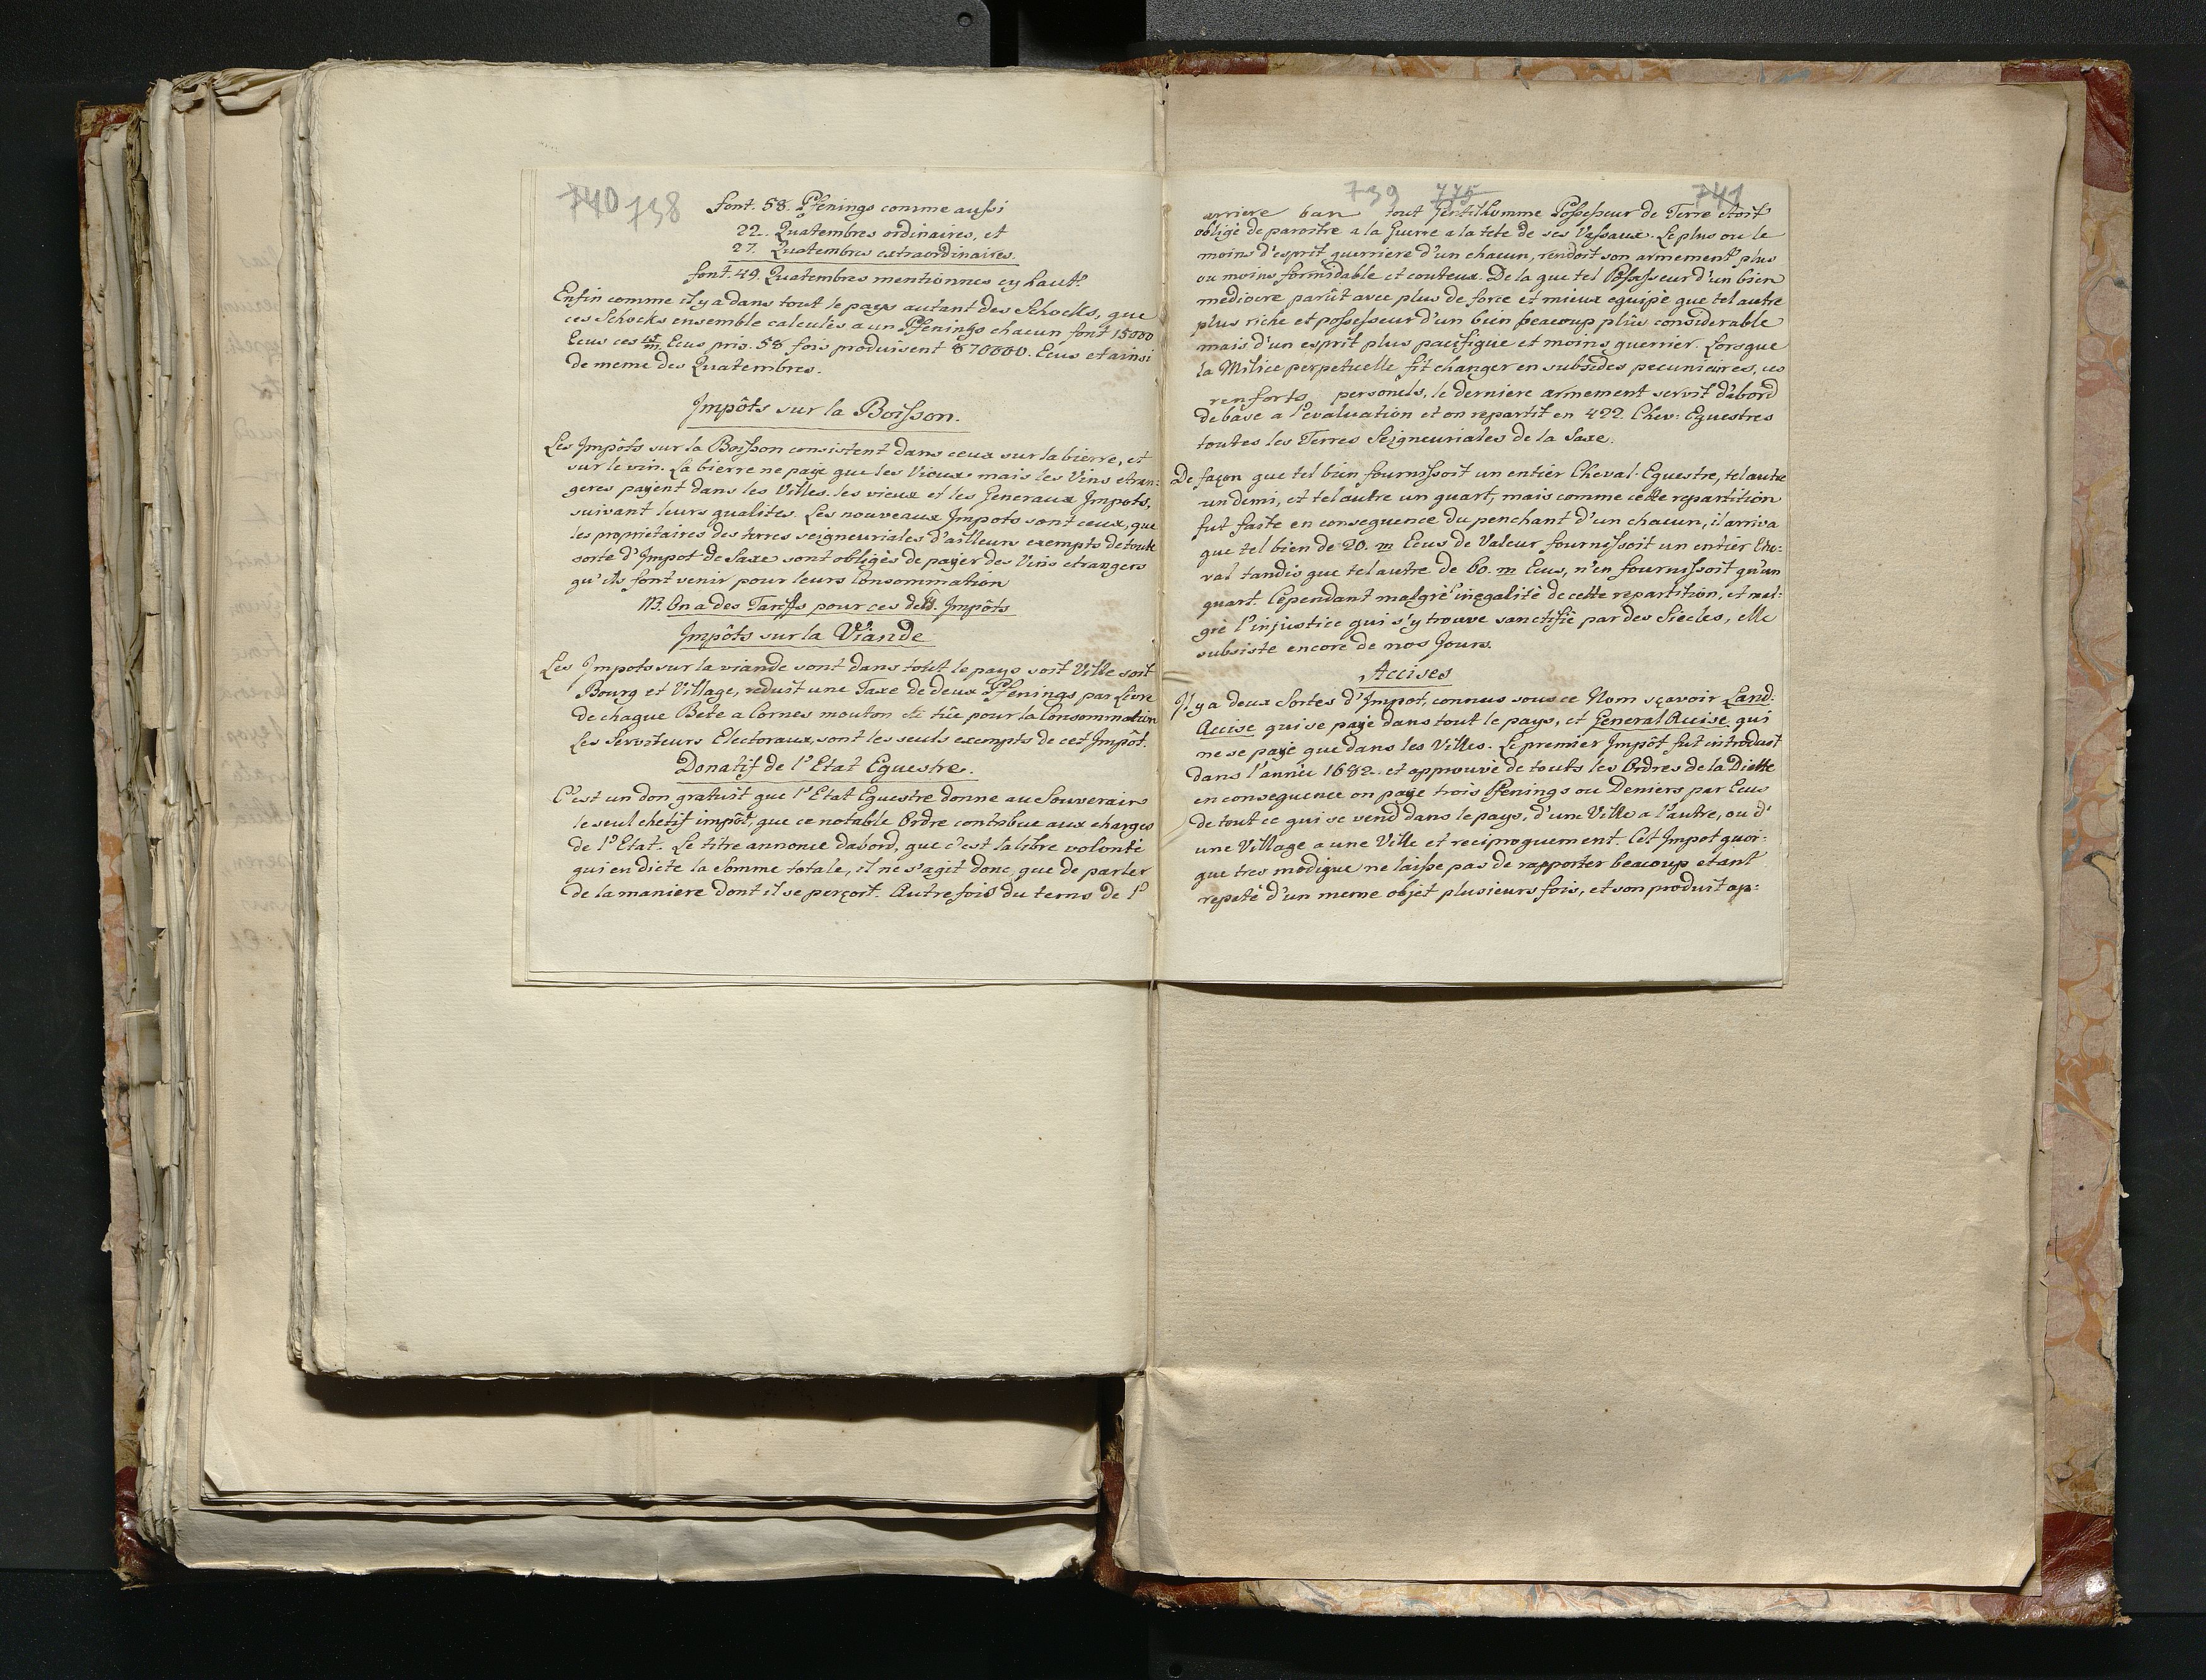 740 738
font. 58. Pfenings comme aussi
22. Quatembres ordinaires, et
27. Quatembres extraordinaires.
font. 49. Quatembres mentionnes cy haut.
Enfin comme il y a dans tout le pays autant des Schocks, que
ces Schocks ensemble calculés a un Pfenings chacun font 15000
Ecus ces 15/m. Ecus pris. 58 fois produisent 870000. Ecus et ainsi
de meme des Quatembres.
Impôts sur la Boisson.
Les Impôts sur la Boisson consistent dans ceux sur la bierre, et
sur le vin. La bierre ne paye que les Vieux mais les Vins etran:
geres payent dans les Villes. les vieux et les Generaux Impots,
suivant leurs qualites. Les nouveaux Impots sont ceux, que
les proprietaires des terres seigneuriales d'ailleurs exempts de toute
sorte d'Impot de Saxe sont obligés de payer des Vins etrangers
qu'ils font venir pour leurs Consommation
NB. On a des Tariffs pour ces Impôts
Impôts sur la Viande
Les Impots sur la viande sont dans tout le pays soit Ville soit
Bourg et Village, reduit une Taxe de deux Pfenings par Livre
de chaque Bete a Cornes mouton tüe pour la Consommation
Les Serviteurs Electoraux, sont les seuls exempts de cet Impôt.
Donatif de l'Etat Equestre.
C'est un don gratuit que l'Etat Equestre donne au Souverain
le seul chetif impôt, que ce notable Ordre contribue aux charges
de l'Etat. Le titre annonce dabord, que c'est la libre volonté
qui en dicte la somme totale, il ne s'agit donc, que de parler
de la maniere dont il se perçoit. Autrefois du tems de l'
739 775 741
arriere ban tout Gentilhomme Possesseur de Terre etoit
obligé de paroitre a la Guerre a la tete de ses Vassaux. Le plus ou le
moins d'esprit guerriere d'un chacun, rendoit son armement plus
ou moins formidable et couteux. De la que tel Possesseur d'un bien
mediocre parût avec plus de force et mieux equipé que tel autre
plus riche et possesseur d'un bien beaucoup plûs considerable
mais d'un esprit plus pacifique et moins guerrier. Lorsque
la Milice perpetuelle fit changer en subsides pecunieires, ces
renforts personels, le derniere armement servit d'abord
de bâse a l'evaluation et on repartit en 422. Chev: Equestres
toutes les Terres Seigneuriales de la Saxe.
De façon que tel bien fournissoit un entier Cheval Equestre, tel autre
un demi, et tel autre un quart, mais comme cette repartition
fut faite en consequence du penchant d'un chacun, il arriva
que tel bien de 20. m Ecus de Valeur fournissoit un entier Che:
val tandis que tel autre de 60. m Ecus, n'en fournissoit qu'un
quart. Cependant malgré inegalité de cette repartition, et mal:
gré l'injustice qui s'y trouve sanctifié par des Siecles, elle
subsiste encore de nos Jours.
Accises
Il y a deux Sortes d'Impot, connus sous ce Nom sçavoir Land.
Accise qui se paye dans tout le pays, et General Accise qui
ne se paye que dans les Villes. Le premier Impôt fut introduit
dans l'année 1682. et approuvé de touts les Ordres de la Diette
en consequence on paye trois Pfenings ou Deniers par Ecus
de tout ce qui se vend dans le pays, d'une Ville a l'autre, ou d'
une Village a une Ville et reciproquement. Cet Impot quoi:
que tres modique ne laisse pas de rapporter beaucoup etant
repeté d'un meme objet plusieurs fois, et son produit ap: